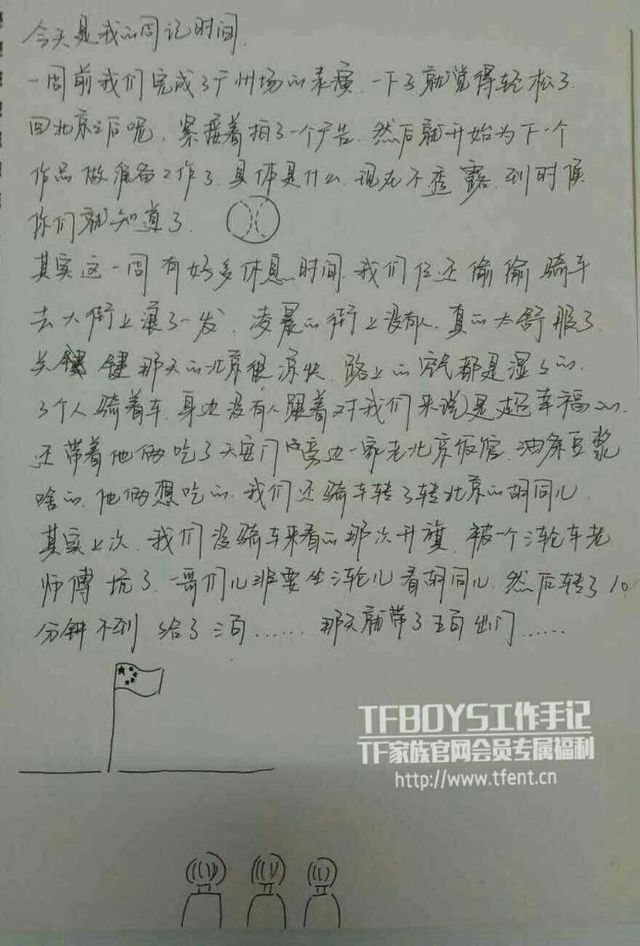 今天是我的周记时间.
一周前我们完成了广州场的表演.一下子就觉得轻松了.
回北京之后呢,紧接着拍了一个广告.然后就开始为下一个
作品做准备工作了.具体是什么.现在不透露.到时候
你们就知道了.
其实这一周有好多休息时间.我们仨还偷偷骑车
去大街上滚了一发.凌晨的街上没有人.真的太舒服了.
关键 那天的北京很凉快.路上的空气都是湿的.
3个人骑着车.身边没有人跟着对我们来说是超幸福的.
还带着他俩吃了天安门旁边一家老北京饭馆.油条豆浆
啥的.他俩想吃的.我们还骑车转了转北京的胡同儿.
其实上次.我们没骑车来看的那次升旗.被一个三轮车老
师傅坑了.哥们儿非要坐三轮儿看胡同儿.然后转了10
分钟不到 给了三百......那天就带了五百出门......
TFBOYS工作手记
TF家族官网会员专属福利
http://www.tfent.cn